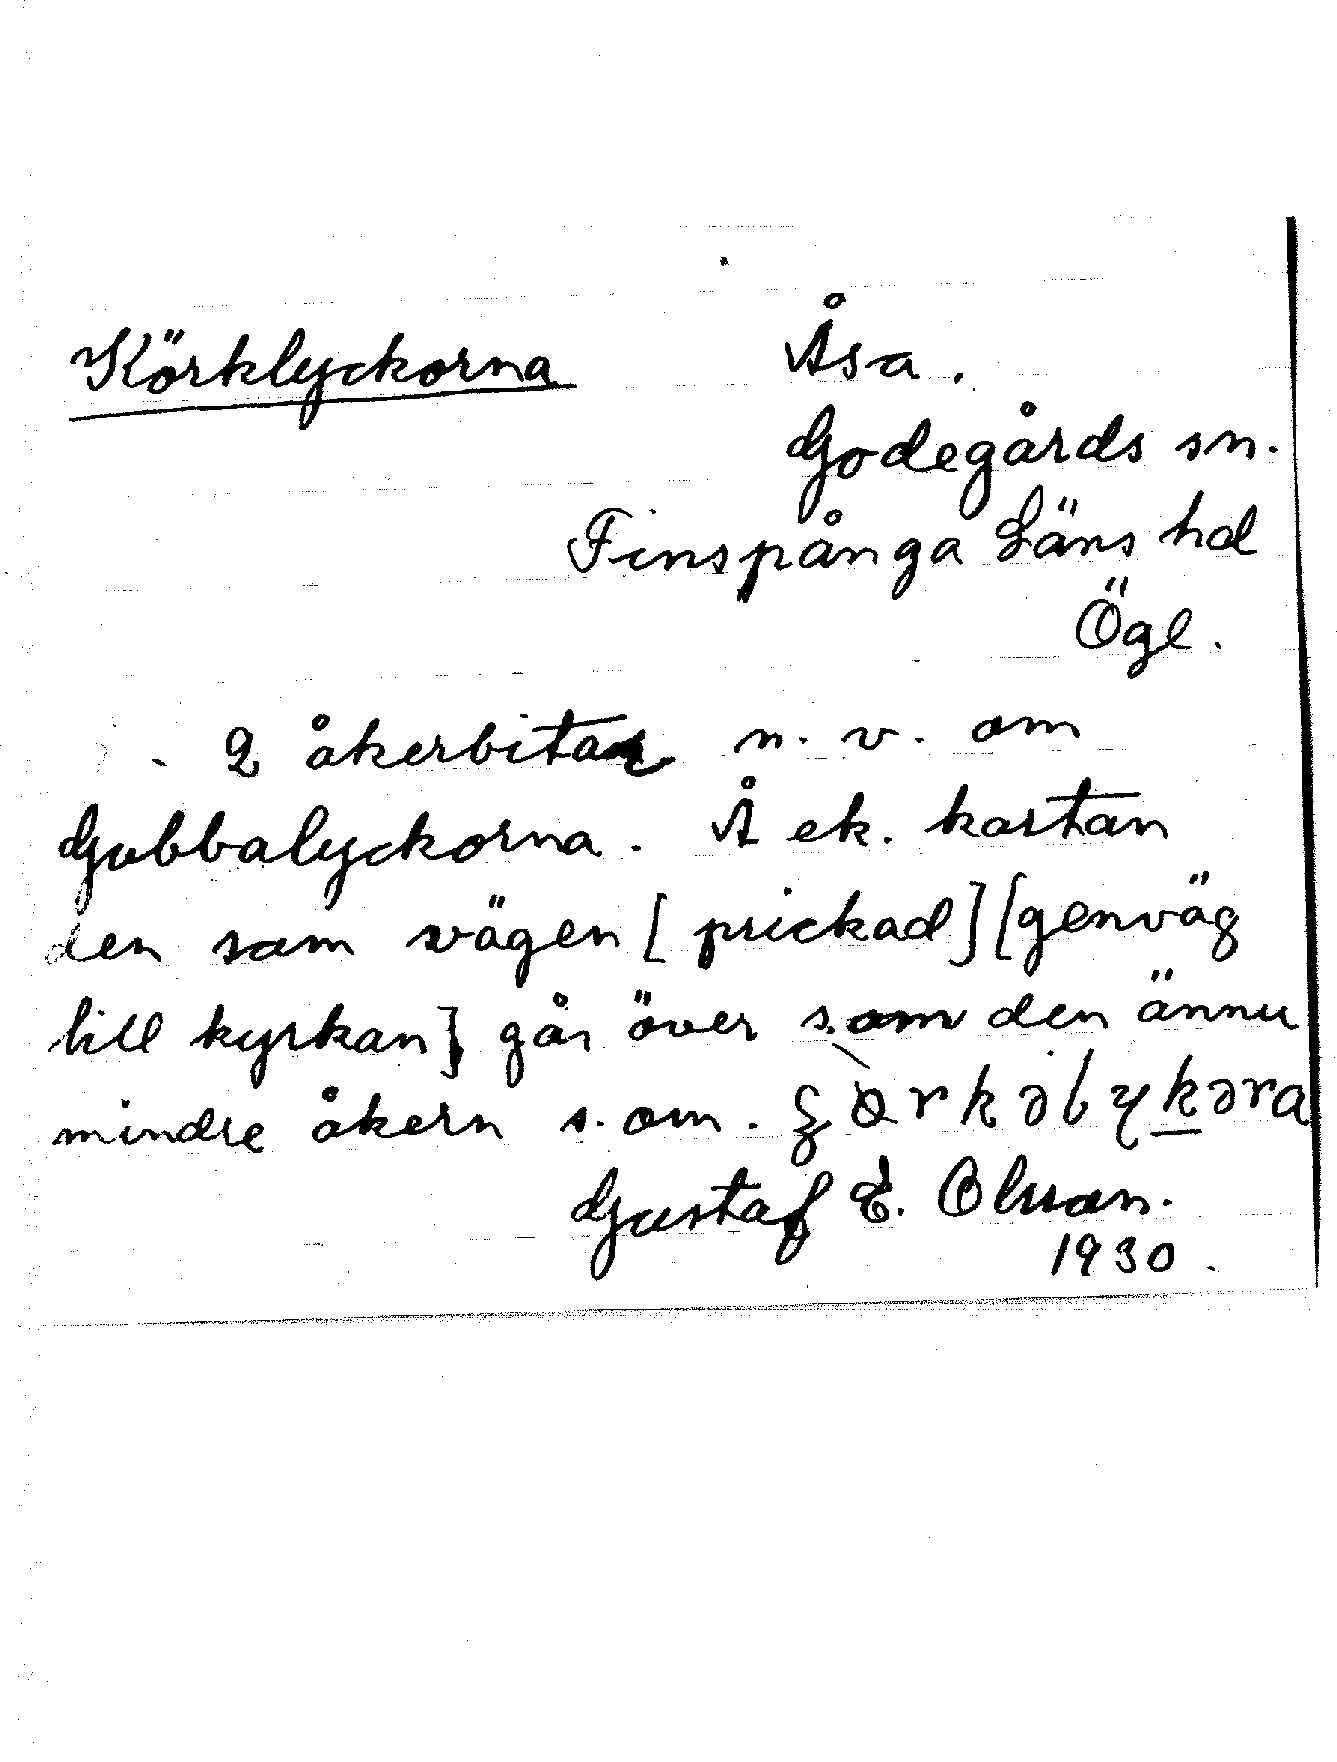 Körklyckorna Åsa.
Godegårds sn.
Finspånga Läns hd
Ögl.
2 åkerbitar n. v. om
Gubbalyckorna. Å ek. kartan
den som vägen [prickad] [genväg
till kyrkan] går över s. om den ännu
mindre åkern s. om.
Gustaf E. Olsson.
1930.